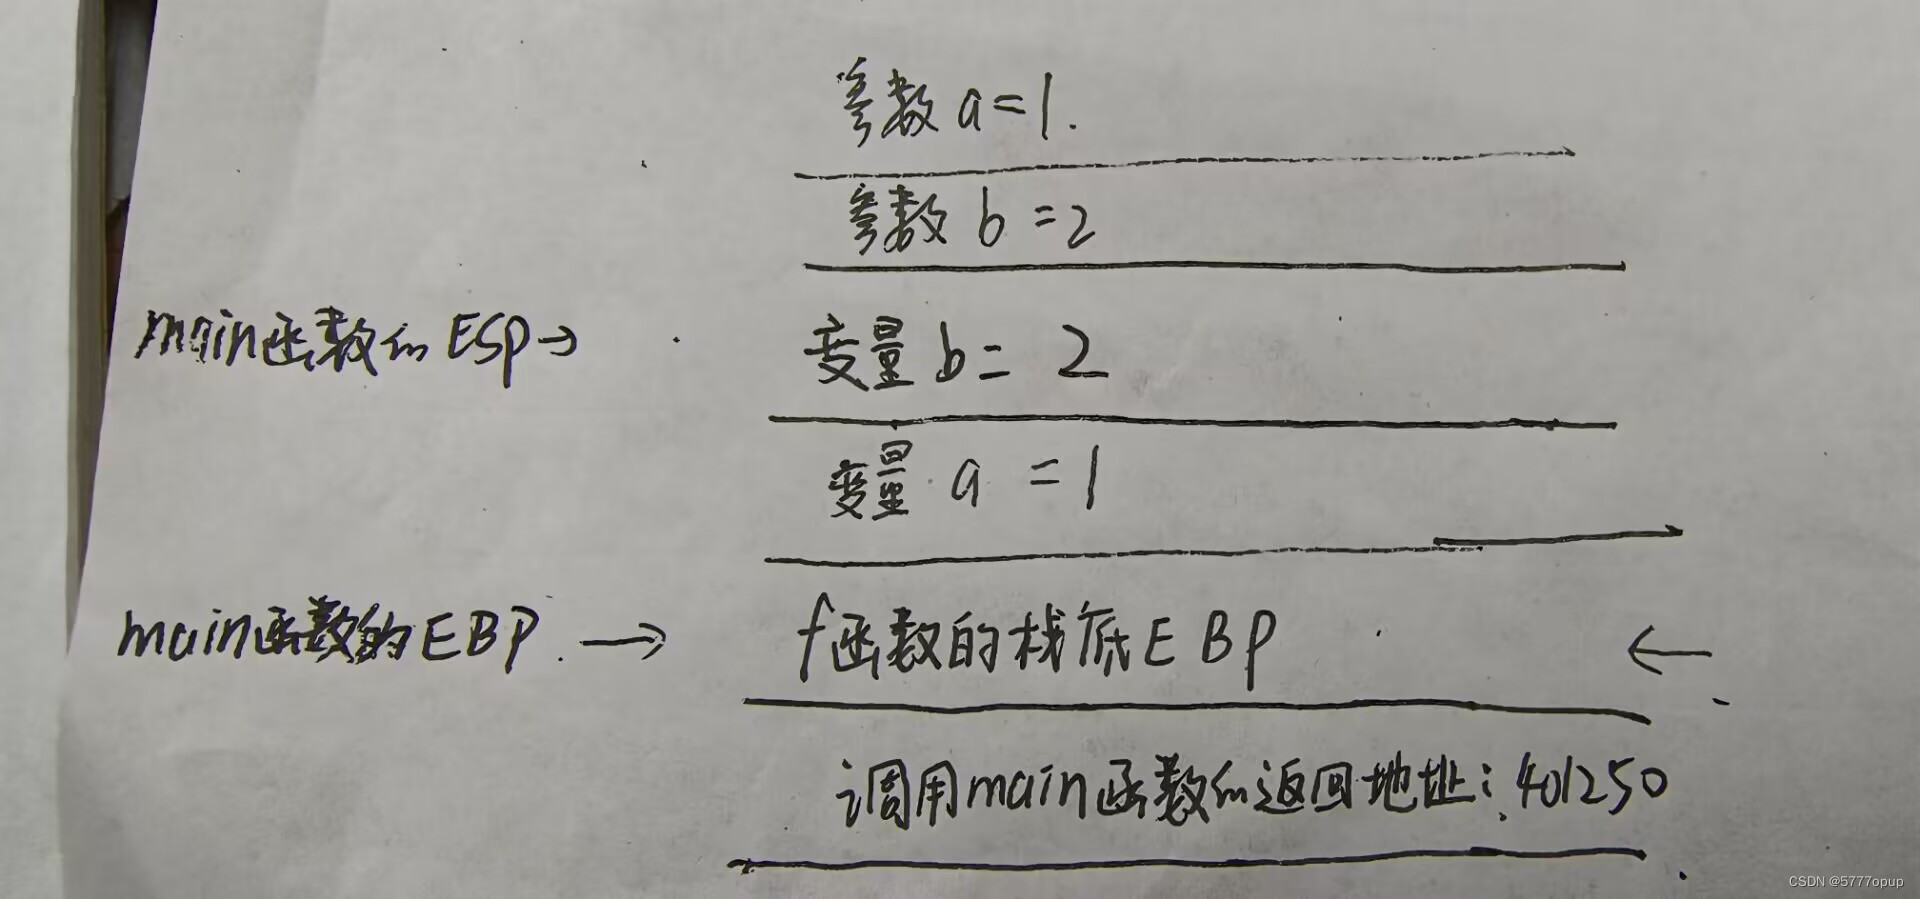 参数 a=1.
参数 b=2
main函数的ESP→ 变量 b= 2
变量 a =1
main函数的EBP. → f函数的栈底EBP ←
调用main函数的返回地址: 401250
CSDN @5777opup